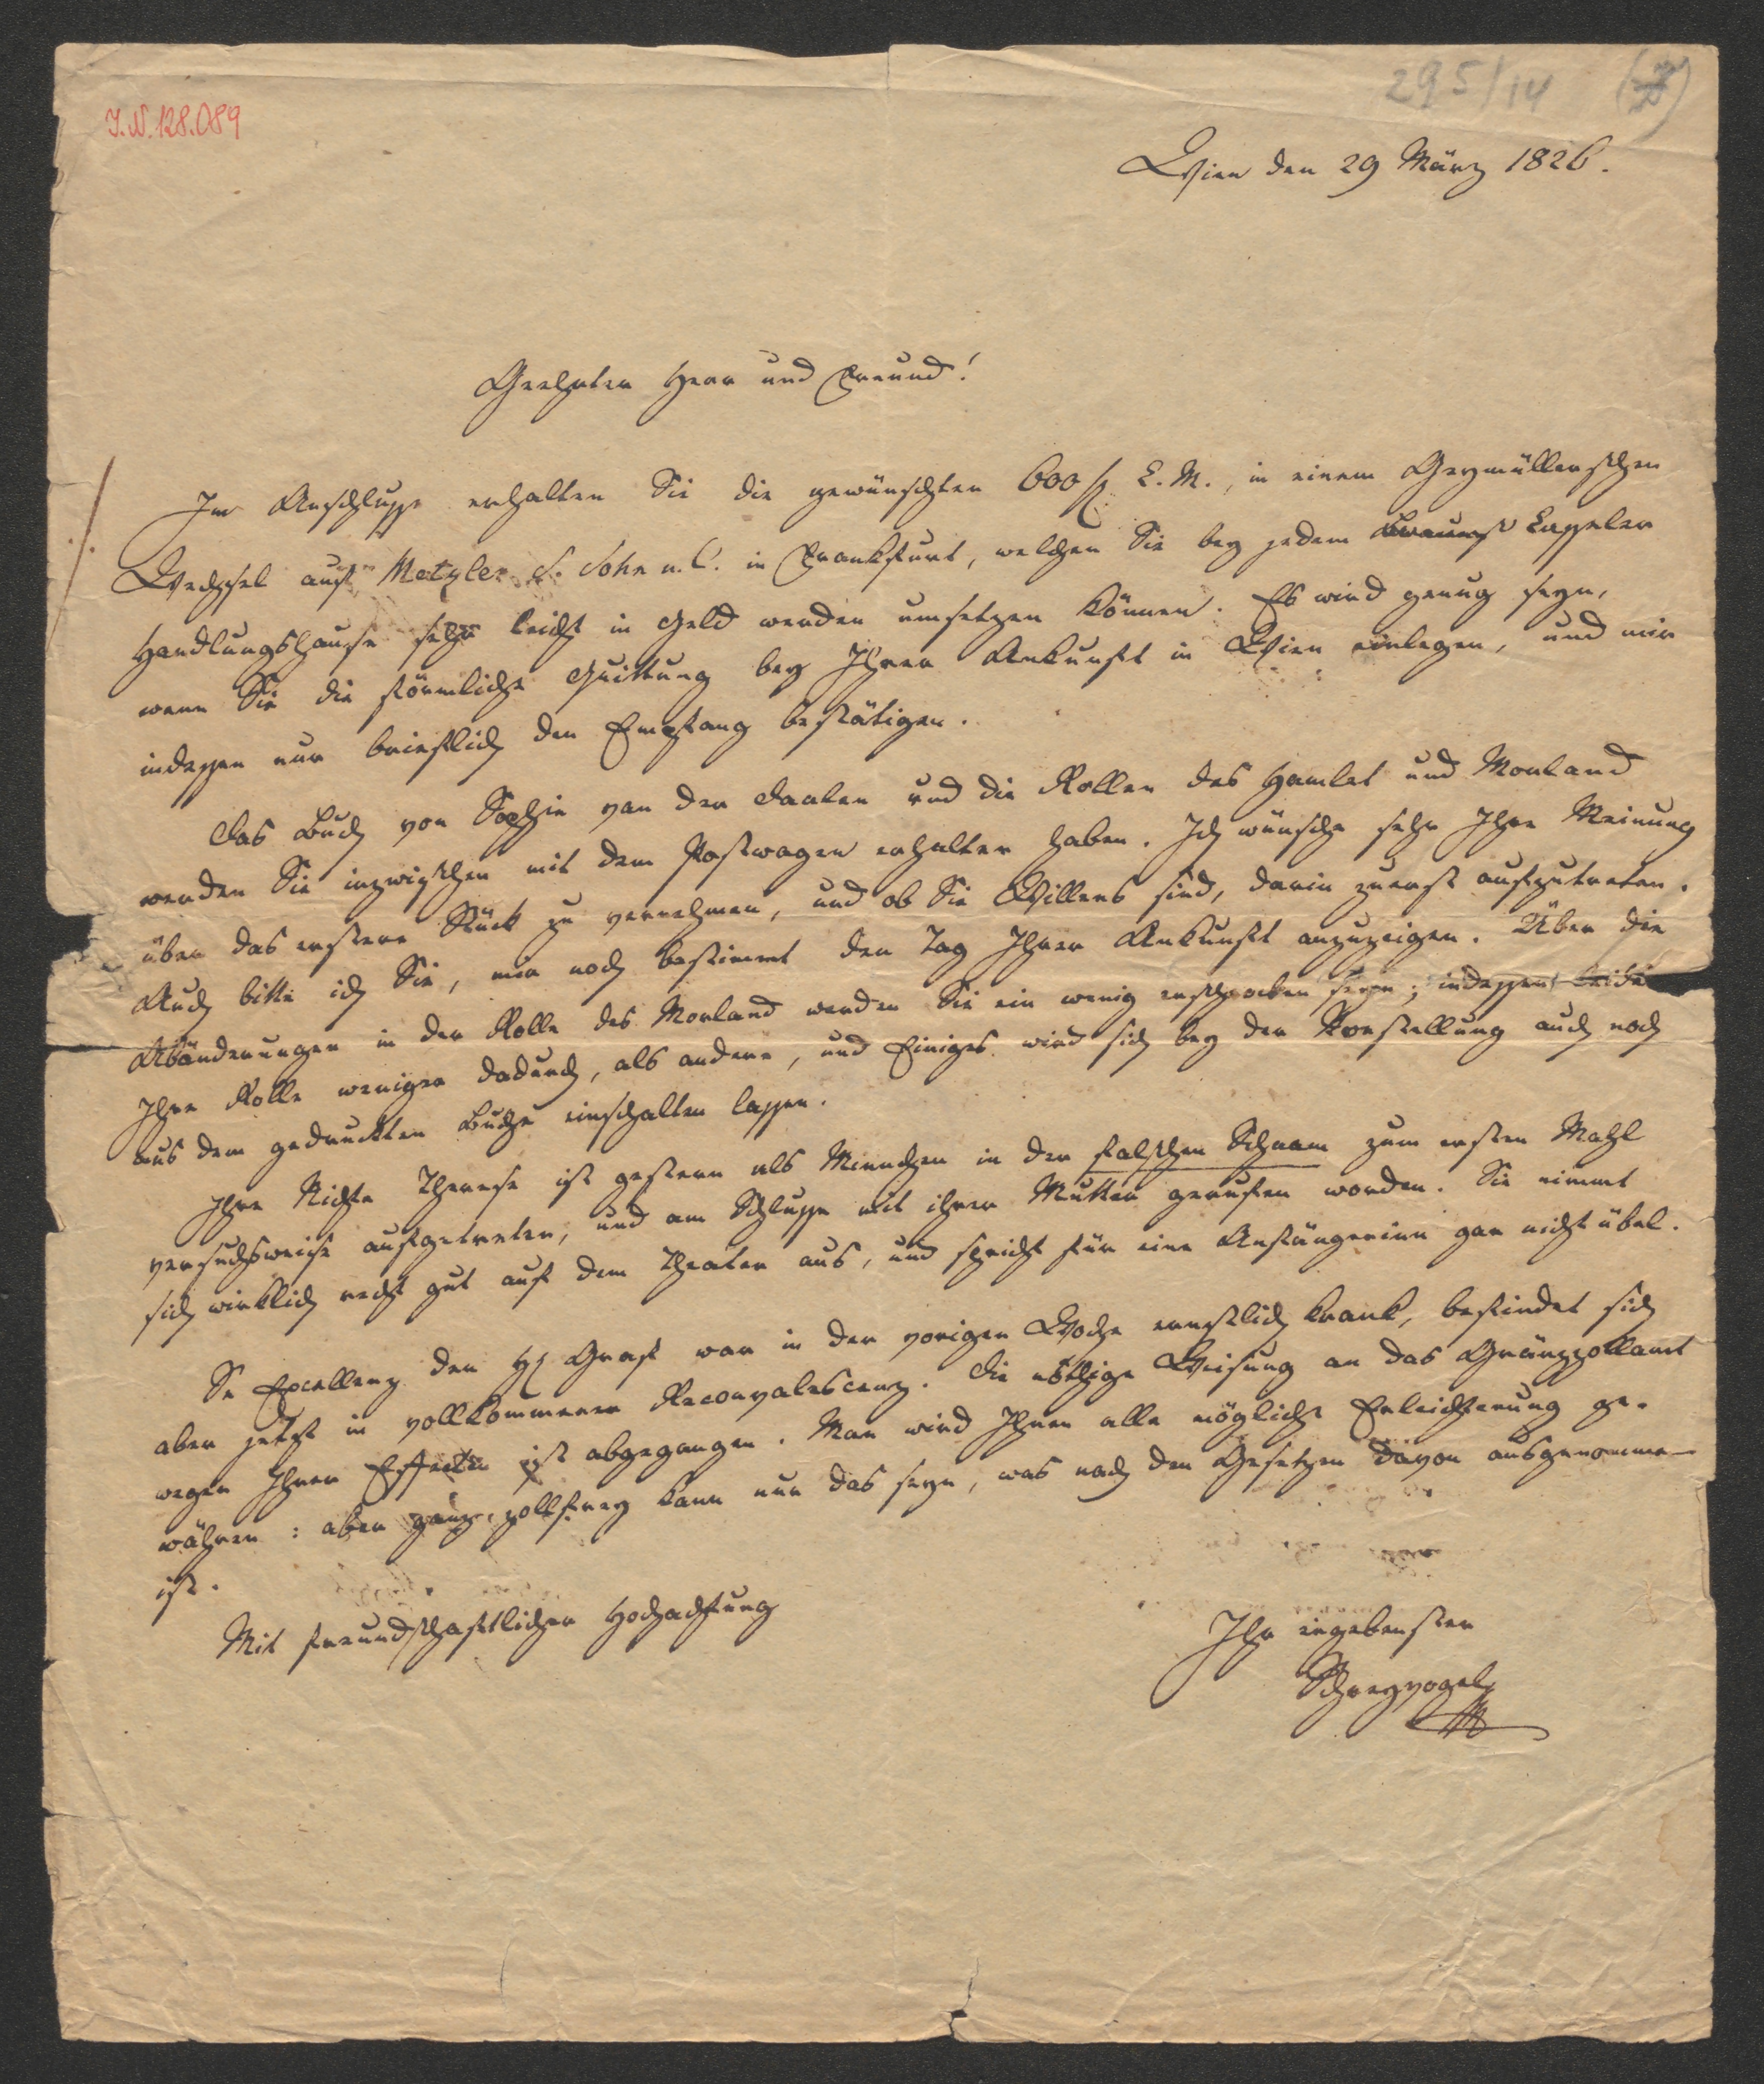 I.N. 128.089
295/14
Wien den 29 März 1826.
Geehrter Herr und Freund!
Im Anschlusse erhalten Sie die gewünschten 600 f C.M., in einem Geymüllerschen
Wechsel auf Metzler S. Sohn u. C. in Frankfurt, welchen Sie bey jedem Casseler
Handlungshause sehr leicht in Geld werden umsetzen können. Es wird genug seyn,
wenn Sie die förmliche Quittung bey Ihrer Ankunft in Wien einlegen, und mir
indessen nur brieflich den Empfang bestätigen.
Das Buch von Sophie van der Daalen und die Rollen des Hamlet und Morland
werden Sie inzwischen mit dem Postwagen erhalten haben. Ich wünsche sehr Ihre Meinung
über das erstere Stück zu vernehmen, und ob Sie Willens sind, darin zuerst aufzutreten.
Auch bitte ich Sie, mir noch bestimmt den Tag Ihrer Ankunft anzuzeigen. Über die
Abänderungen in der Rolle des Morland werden Sie ein wenig erschrocken seyn; indessen leidet
Ihre Rolle weniger dadurch, als andere, und Einiges wird sich bey der Vorstellung auch noch
aus dem gedruckten Buche einschalten lassen.
Ihre Nichte Therese ist gestern als Minchen in der falschen Schaam zum ersten Mahl
versuchsweise aufgetreten, und am Schlusse mit ihrer Mutter gerufen worden. Sie nimmt
sich wirklich recht gut auf dem Theater aus, und spricht für eine Anfängerinn gar nicht übel.
Se Excellenz der H. Graf war in der vorigen Woche ernstlich krank, befindet sich
aber jetzt in vollkommener Reconvalescenz. Die nöthige Weisung an das Gränzzollamt
wegen Ihrer Effecten ist abgegangen. Man wird Ihnen alle mögliche Erleichterung ge-
währen: aber ganz zollfrey kann nur das seyn, was nach den Gesetzen davon ausgenommen
ist.
Mit freundschaftlicher Hochachtung
Ihr ergebenster
Schreyvogel